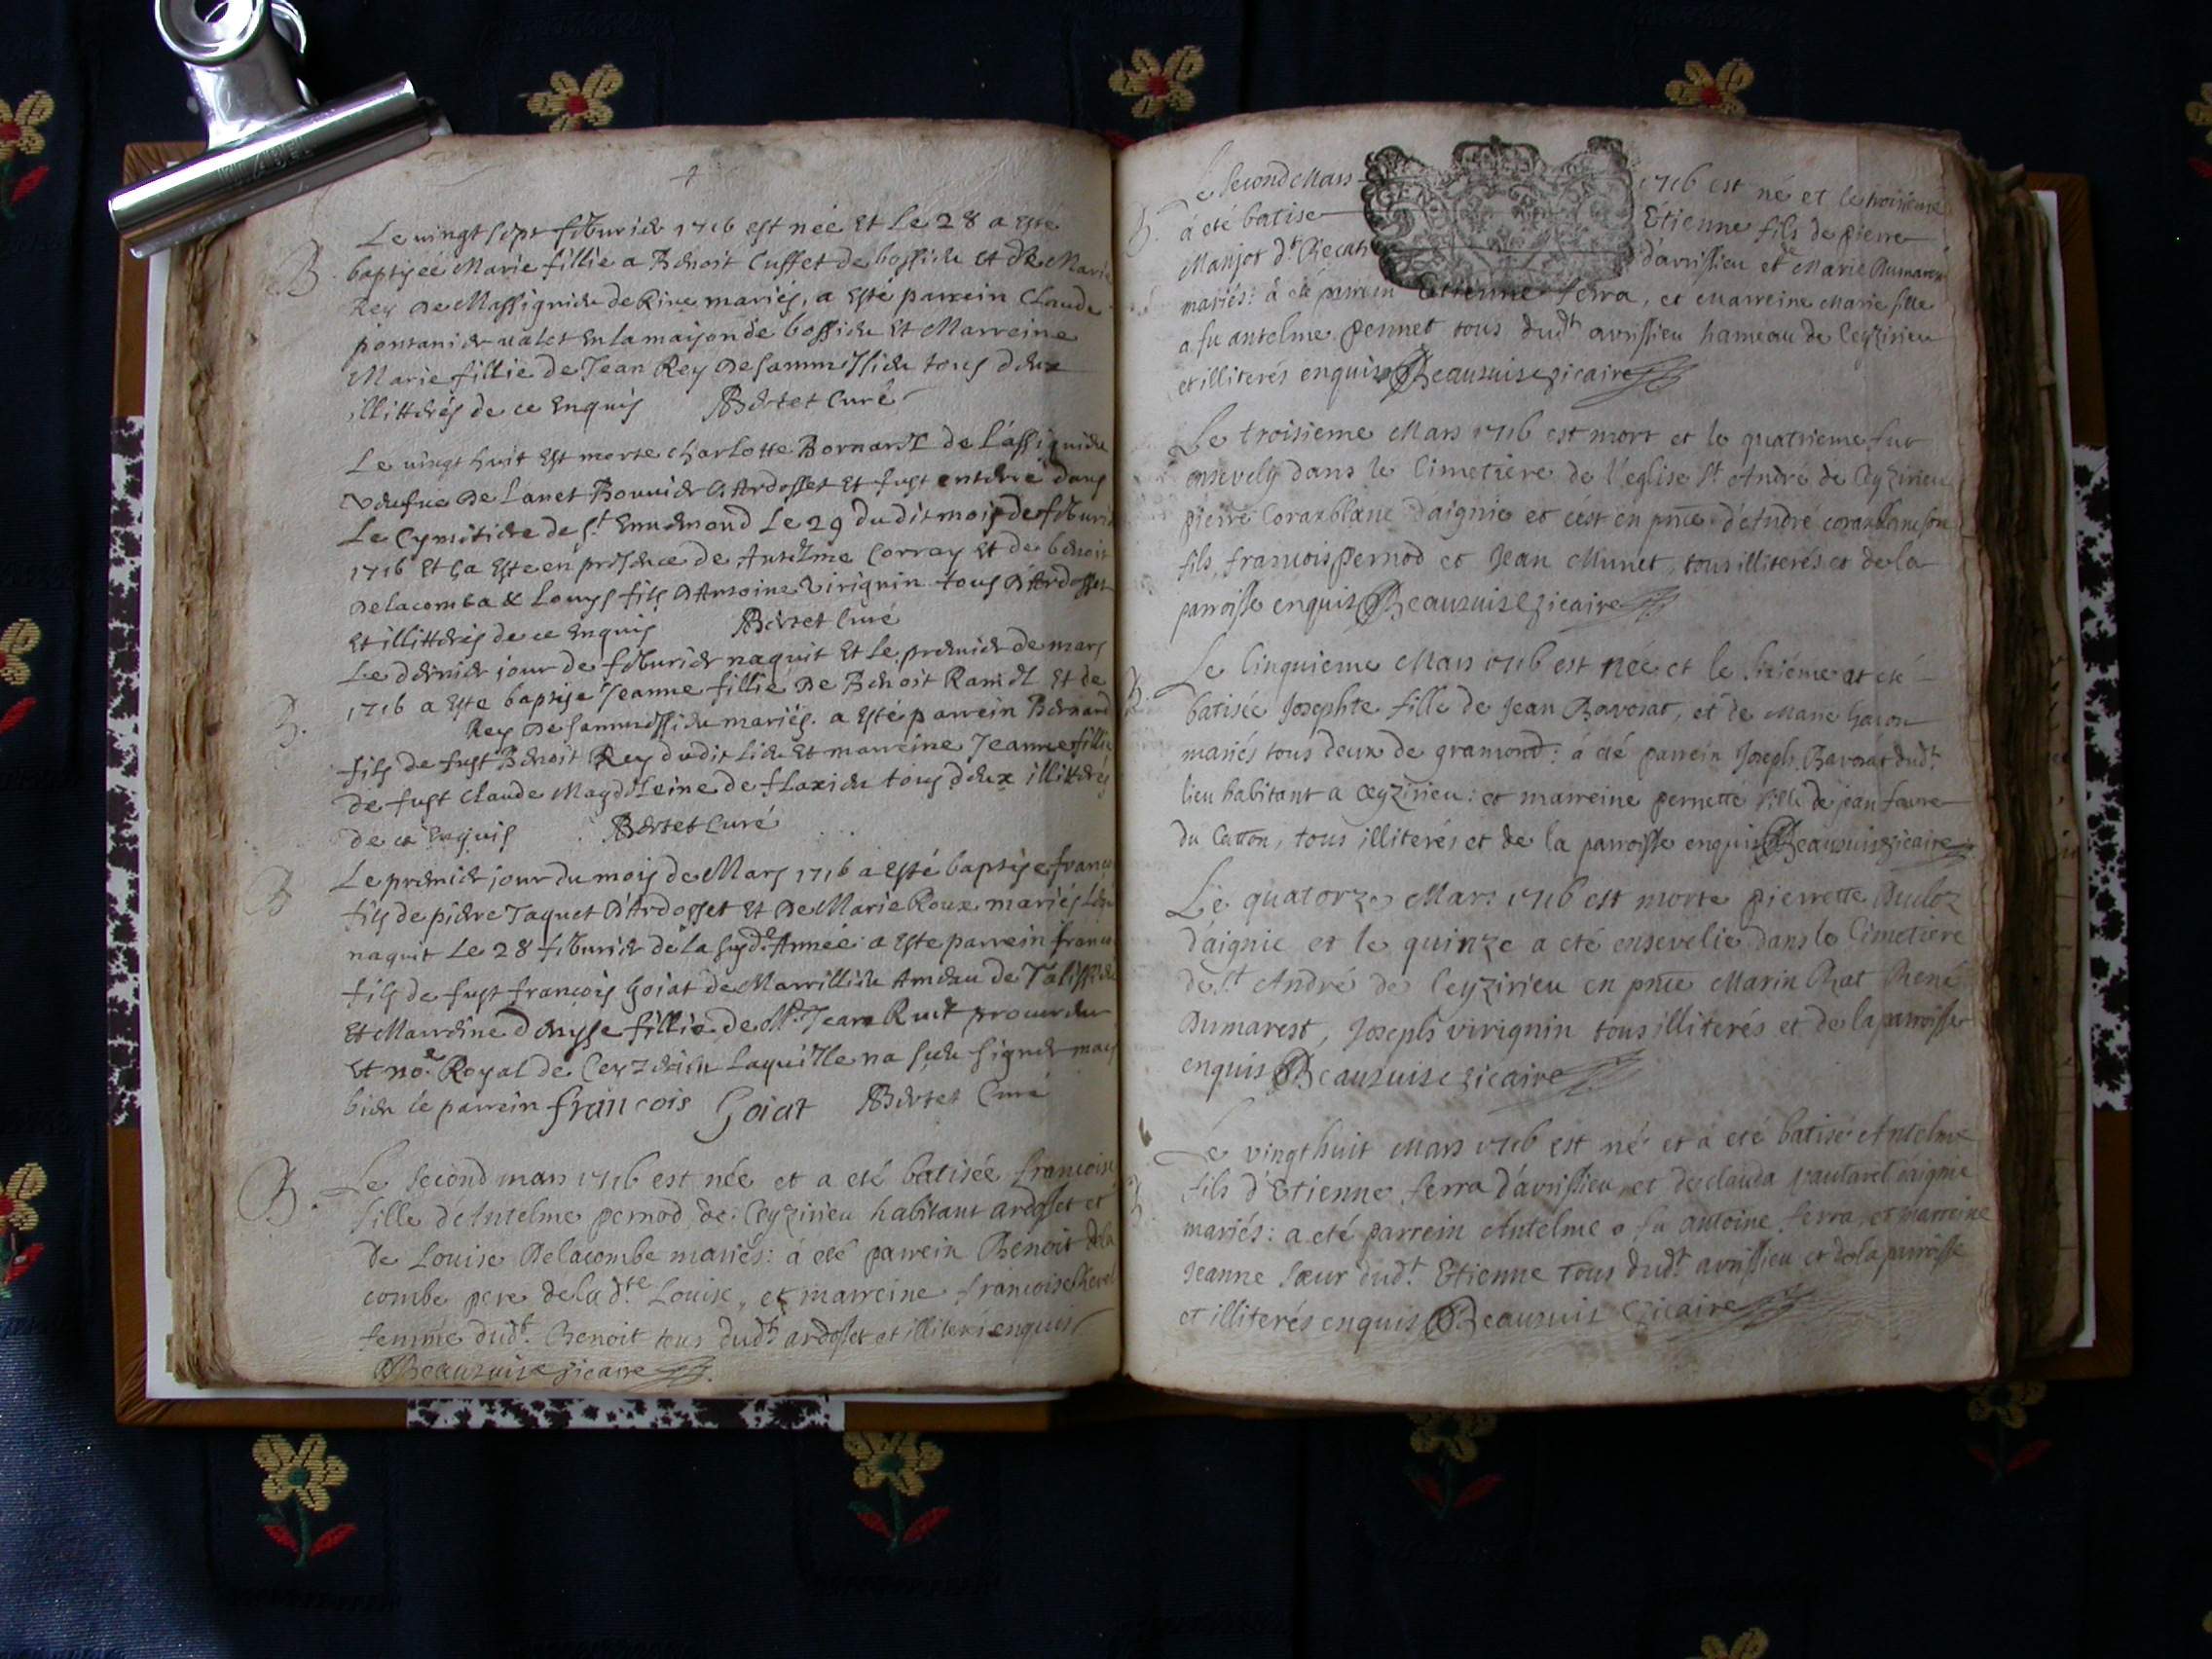 Le vingt sept febvrier 1716 est née Et Le 28 a Esté
B baptisée Marie fillie a Benoit Cusset de bossieu Et de Marie
Rey De Massignieu de Rive mariés, a Esté parrein Claude
pontanier valet En la maison de bossieu Et Marreine
Marie fillie de Jean Rey De sammessieu tous deux
illitterés de ce Enquis Bertet Curé
Le vingt huit Est morte charlotte Bornard de
vdefue De Bouvier d'Ardosset Et fust enterré dans
Le Cymitiere de St Ennemond Le 29 du dit mois de febvrie
1716 Et ça Esté en présence de Antelme Corray Et de benoit
Delacomba & Louys fils D'Antoine virignin tous D'Ardosset
Et illitterés de ce Enquis Bertet Curé
Le dernier jour de febvrier naquit Et Le premier de mars
1716 a Este baptise Jeanne fillie De Benoit Et de
B. Rey De sammessieu mariés. a Esté parrein Bernard
fils de fust Benoit Rey dudit Lieu Et marreine Jeanne fillie
de fust Claude Magdeleine de flaxieu tous deux illitterés
de ce Enquis Bertet Curé
B Le premier jour du mois de Mars 1716 a Esté baptise franco
fils de pierre Jaquet D'Ardosset Et De Marie Roux mariés
naquit Le 28 febvrier de la Année: a Este parrein franco
fils de fust françois Goiat de Marrillieu Ameau de
Et Marreine denyse fillie de Mr Jean procureur
Et no.re Royal de Ceyzerieu Laquelle na sceu signer mais
bien le parrein francois Goiat Bertet Curé
B. Le second mars 1716 est née et a eté batisée francoise
fille d'Antelme pernod de Ceyzirieu habitant ardosset et
de Louise Delacombe mariés: a été parrein Benoit dela
combe pere dela d.te Louise, et marreine francoise
femme dud.t Benoit tous dud.t ardosset et illiterés enquis
Beauvuise vicaire
Le second Mars 1716 est né et le troisieme
B. a été batise Etienne fils de pierre
Manjot d.t d'avrissieu et Marie Dumarest
mariés: a été parrein Etienne ferra, et Marreine Marie fille
a fu antelme pennet tous dud.t avrissieu hameau de Ceyzirieu
et illiterés enquis Beauvuise vicaire
Le troisieme Mars 1716 est mort et le quatrieme fut
ensevely dans le Cimetiere de l'eglise St André de Ceyzirieu
pierre Coraxblanc d'aignie et c'est en pnce d'André coraxblanc son
fils, francois pernod et Jean Munet, tous illiterés et dela
parroisse enquis Beauvuise vicaire
Le Cinquieme Mars 1716 est née et le sixiéme at été
B. batisée Josephte fille de Jean Ravorat, et de Marie
mariés tous deux de gramond: a été parrein Joseph Ravorat dud.t
lieu habitant a Ceyzirieu: et marreine pernette fille de jean favre
du Catton, tous illiterés et de la parroisse enquis Beauvuise vicaire
Le quatorze Mars 1716 est morte pierrette
d'aignie et le quinze a eté ensevelie dans le Cimetiere
de St André de Ceyzirieu en pnce Marin René
Dumarest, Joseph virignin tous illiterés et de la parroisse
enquis Beauvuise vicaire
Le vingt huit Mars 1716 est né et a eté batisé Antelme
B fils d'Etienne ferra d'avrissieu et de clauda d'aignie
mariés: a eté parrein Antelme a fu antoine ferra, et marreine
Jeanne sœur dud.t Etienne tous dud.t avrissieu et dela parroisse
et illiterés enquis Beauvuise vicaire